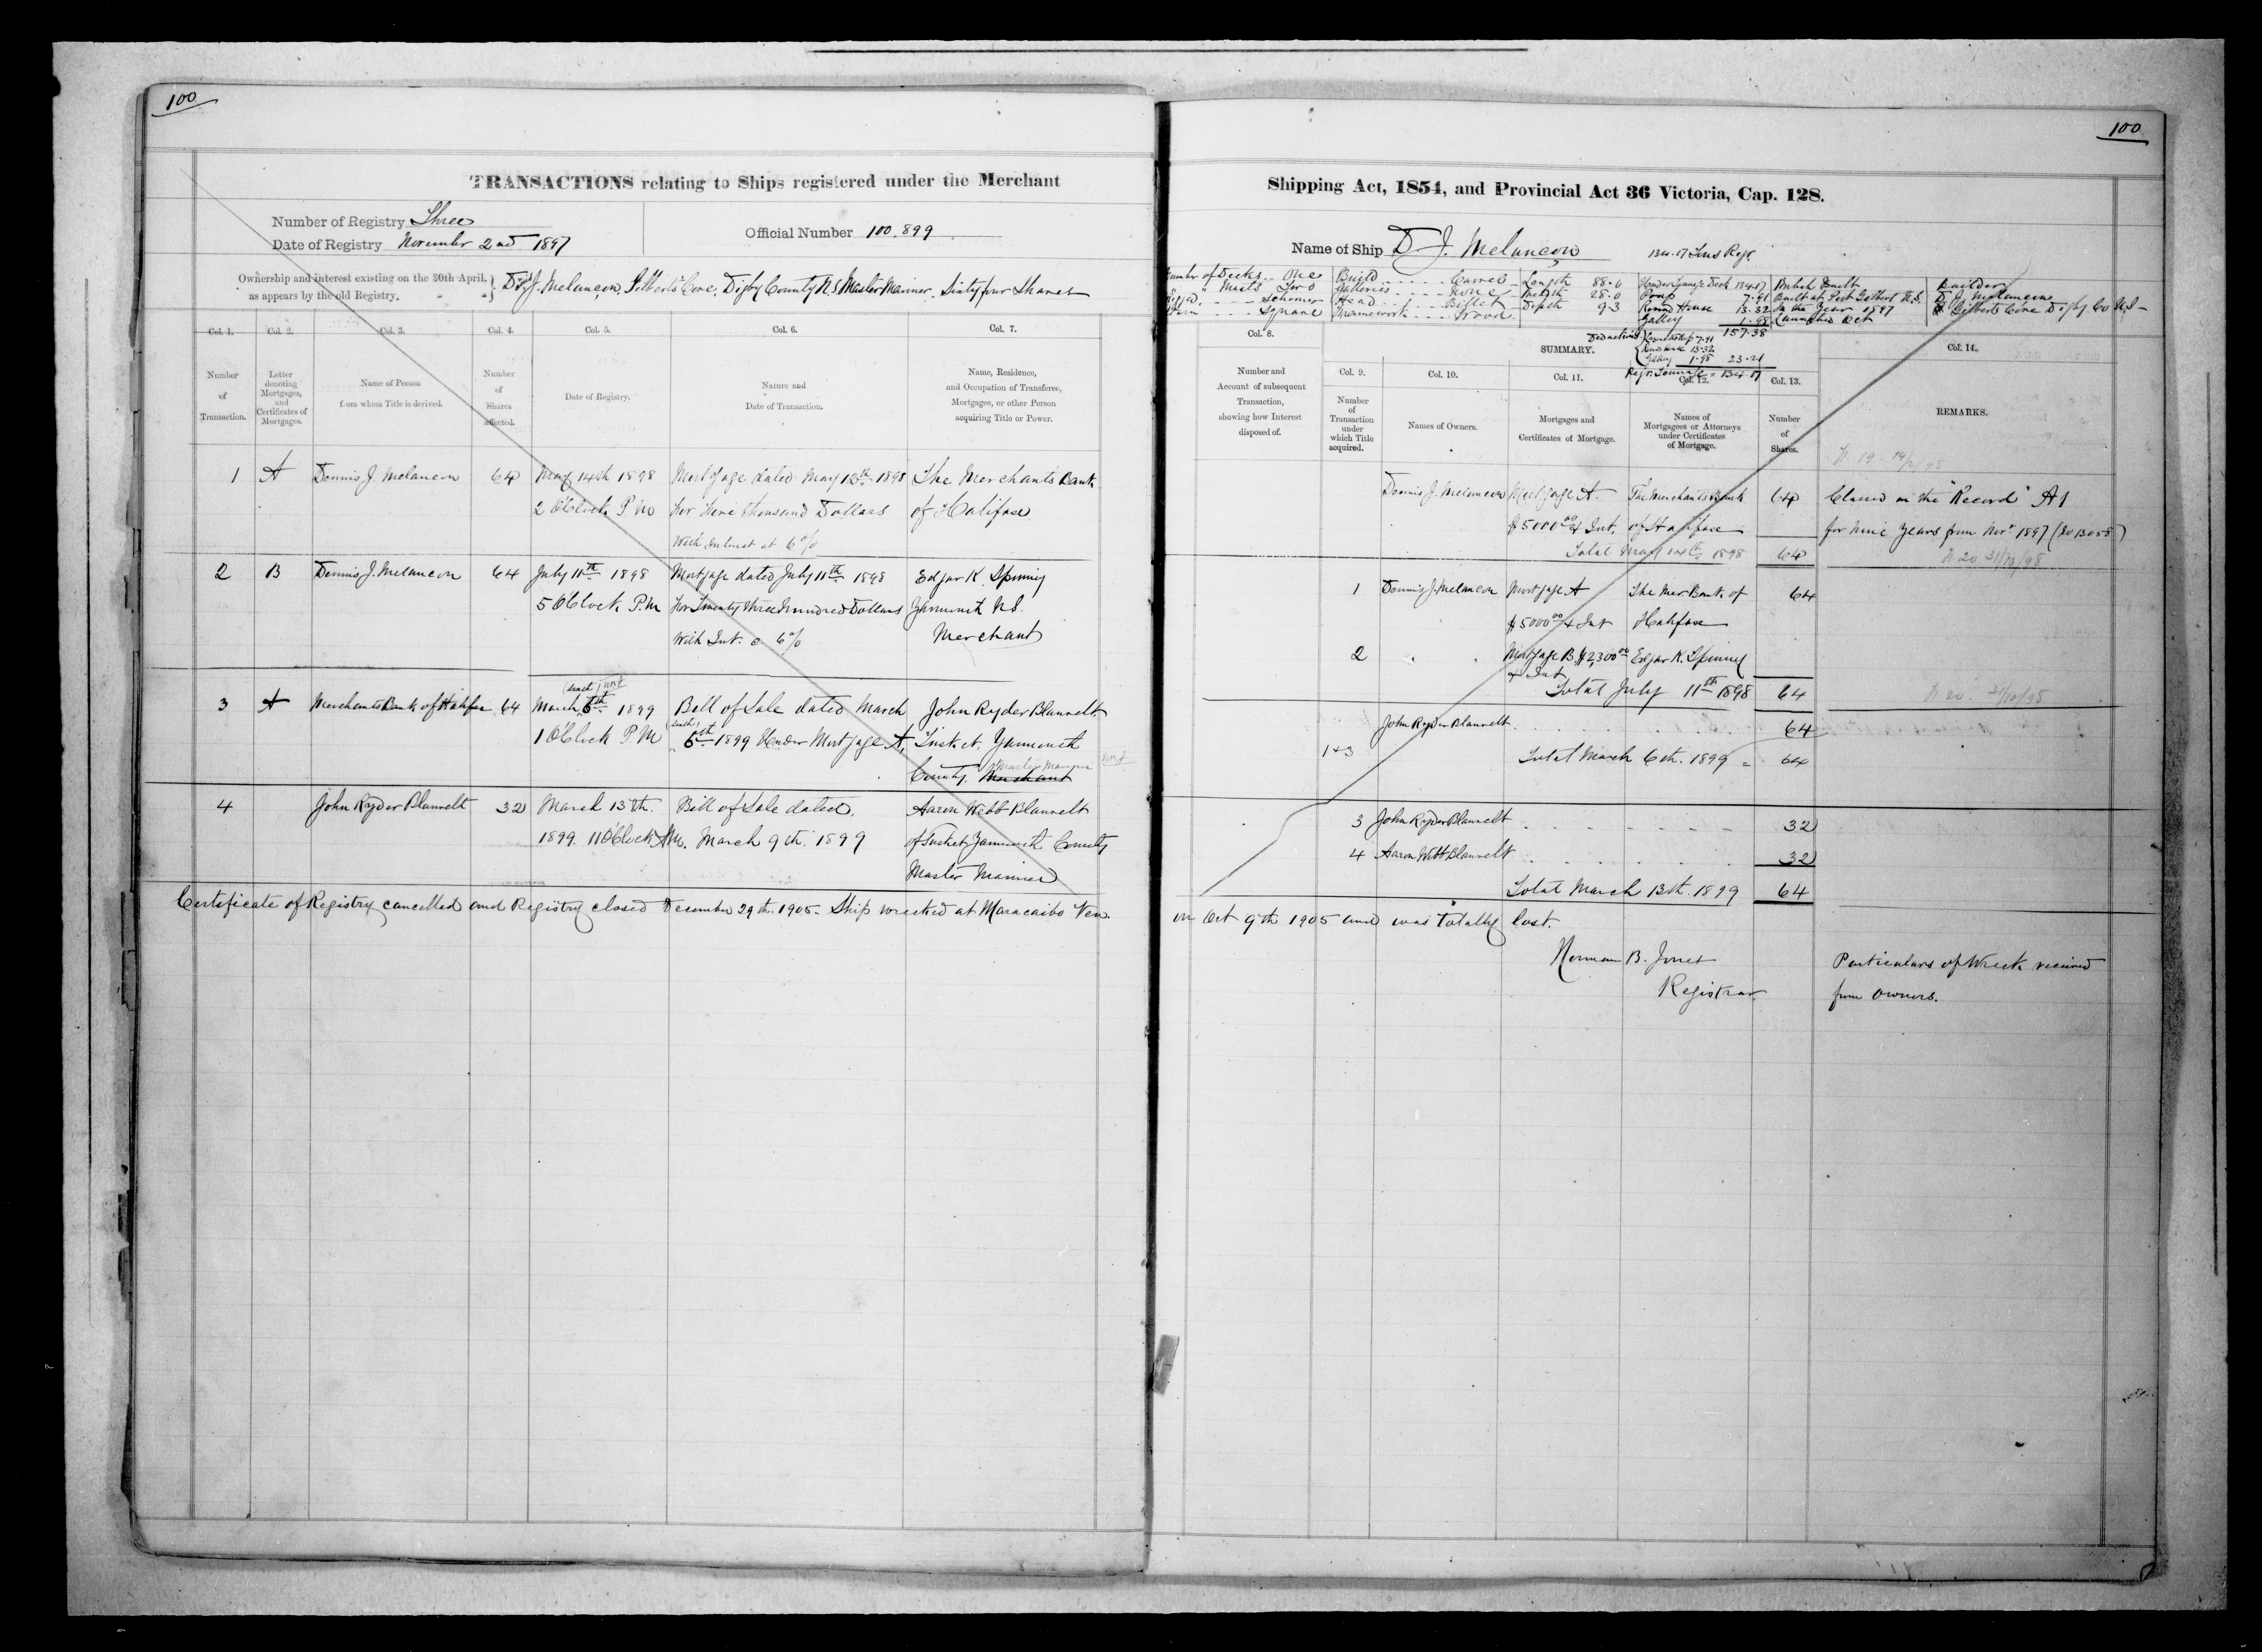 100
TRANSACTIONS relating to Ships registered under the Merchant
Number of Registry Three
Date of Registry November 2nd 1897
Official Number 100.899
Ownership and interest existing on the 30th April, as appears by the old Registry. } D. J. Melancon, Gilberts Cove, Digby County N.S. Master Mariner. Sixty four Shares
Col. 1. Col. 2. Col. 3. Col. 4. Col. 5. Col. 6. Col. 7.
Number of Transaction.
Letter denoting Mortgages, and Certificates of Mortgages.
Name of Person from whom Title is derived.
Number of Shares affected.
Date of Registry.
Nature and Date of Transaction.
Name, Residence, and Occupation of Transferee, Mortgagee, or other Person acquiring Title or Power.
1 A Dennis J. Melancon 64 May 14th 1898 Mortgage dated May 13th 1898 The Merchants Bank
2 O'Clock P.M. For Five thousand Dollars of Halifax
With Interest at 6%
2 B Dennis J. Melancon 64 July 11th 1898 Mortgage dated July 11th 1898 Edgar K. Spinney
5 O'Clock P.M For Twenty three Hundred Dollars Yarmouth N.S.
With Int. @ 6% Merchant
3 A Merchants Bank of Halifax 64 March 6th 1899 Bill of Sale dated March John Ryder Blauvelt
1 O'Clock P.M 6th 1899 Under Mortgage A, Tusket, Yarmouth
Master Mariner
County. Merchant
4 John Ryder Blauvelt 32 March 13th. Bill of Sale dated, Aaron Webb Blauvelt
1899 11 O'Clock AM. March 9th. 1899 of Tusket, Yarmouth County
Master Mariner
Certificate of Registry cancelled and Registry closed December 29th. 1905. Ship wrecked at Maracaibo Ven.
100
Shipping Act, 1854, and Provincial Act 36 Victoria, Cap. 128.
Name of Ship D. J. Melancon 134.17 Tons Regr.
Number of Decks.. One Build ..... Carvel Length 88.0 Under Tonnage Deck 134.17 British Built Builder
" " Masts Two Galleries .... None Breadth 28.0 Poop 7.91 Built at Port Gilbert N.S. D. J. Melancon
Rigged. .... Schooner Head ..... Billet Depth 9.3 Round House 13.32 In the Year 1897 Gilberts Cove Digby Co N.S.
Stern .... Square Framework .... Wood Galley 1.98 Launched Oct
157.38
Deductions
13.32
Galley 1.98 23.21
Regr. Tonnage = 134.17
SUMMARY.
Col. 8. Col. 9. Col. 10. Col. 11. Col. 12. Col. 13. Col. 14.
Number and Account of subsequent Transaction, showing how Interest disposed of.
Number of Transaction under which Title acquired.
Names of Owners.
Mortgages and Certificates of Mortgage.
Names of Mortgagees or Attorneys under Certificates of Mortgage.
Number of Shares.
REMARKS.
Dennis J. Melancon Mortgage A. The Merchants Bank 64 Classed in the "Record" A1
$5000.00 & Int, of Halifax for nine Years from Nov 1897 (No 13058)
Total May 14th 1898 64
1 Dennis J. Melancon Mortgage A The Mer Bank of 64
$5000.00 & Int Halifax
2 " " Mortgage B. $2,300.00 Edgar K. Spinney
& Int
Total July 11th 1898 64
John Ryder Blauvelt 64
1+3 Total March 6th. 1899 = 64
3 John Ryder Blauvelt 32
4 Aaron Webb Blauvelt 32
Total March 13th. 1899 64
on Oct 9th 1905 and was totally lost.
Norman B. Jones
Registrar
Particulars of Wreck received
from owners.